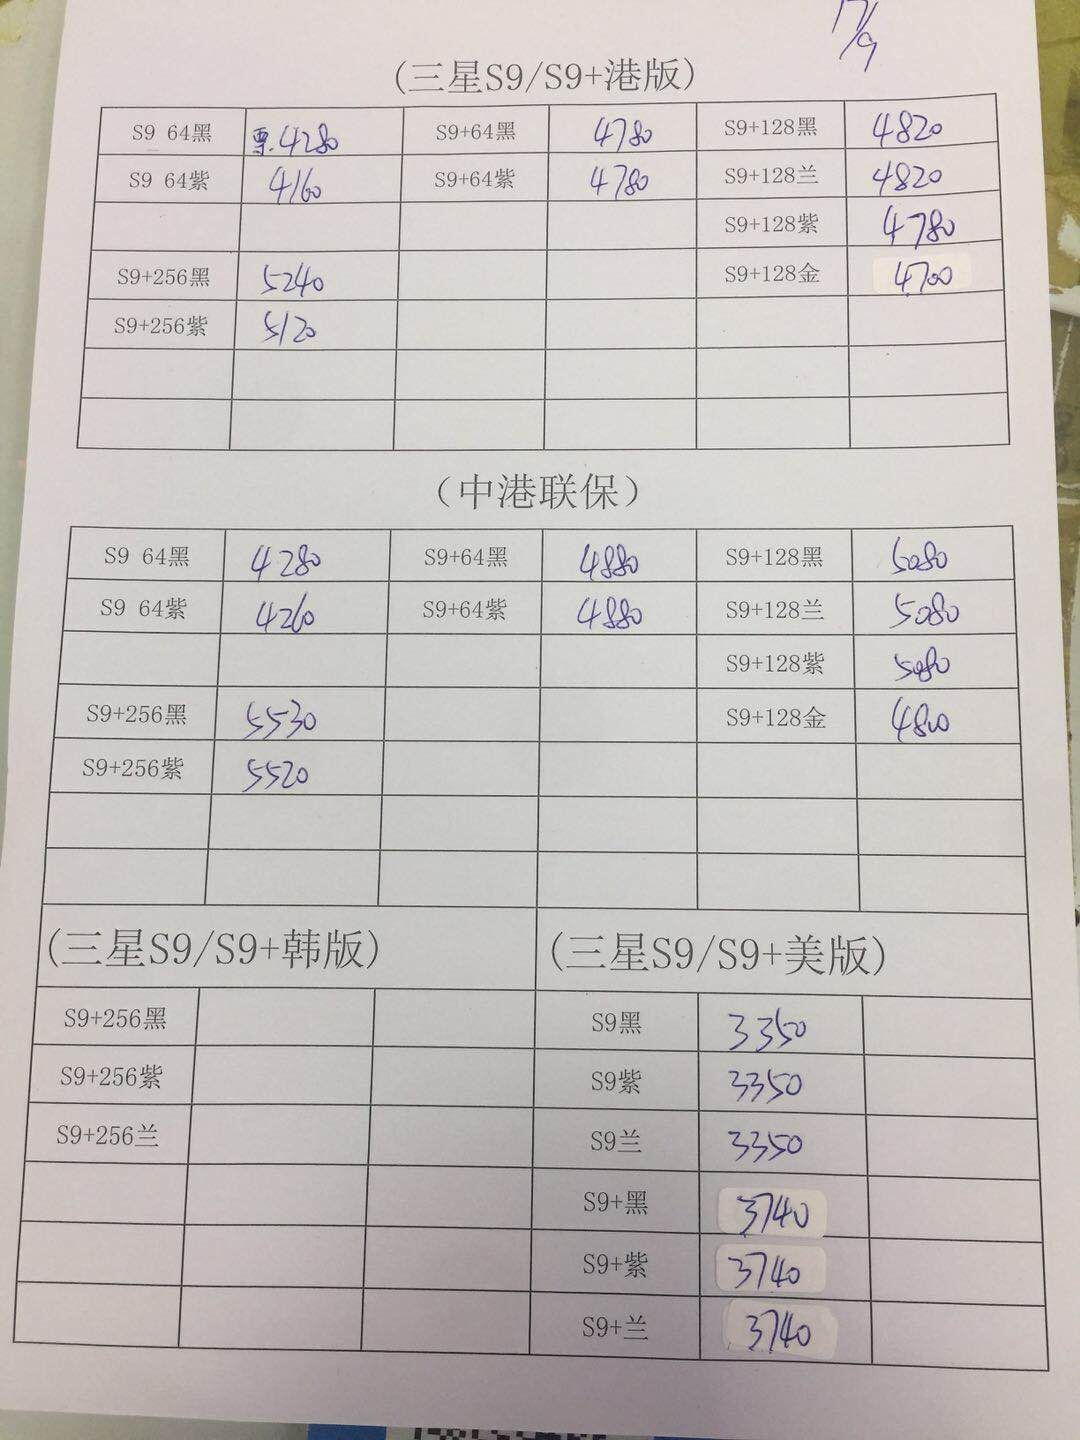 17/9
(三星S9/S9+港版)
S9 64黑 票.4280 S9+64黑 4780 S9+128黑 4820
S9 64紫 4160 S9+64紫 4780 S9+128兰 4820
S9+128紫 4780
S9+256黑 5240 S9+128金 4700
S9+256紫 5120
(中港联保)
S9 64黑 4280 S9+64黑 4880 S9+128黑 5080
S9 64紫 4260 S9+64紫 4880 S9+128兰 5080
S9+128紫 5080
S9+256黑 5530 S9+128金 4800
S9+256紫 5520
(三星S9/S9+韩版) (三星S9/S9+美版)
S9+256黑 S9黑 3350
S9+256紫 S9紫 3350
S9+256兰 S9兰 3350
S9+黑 3740
S9+紫 3740
S9+兰 3740